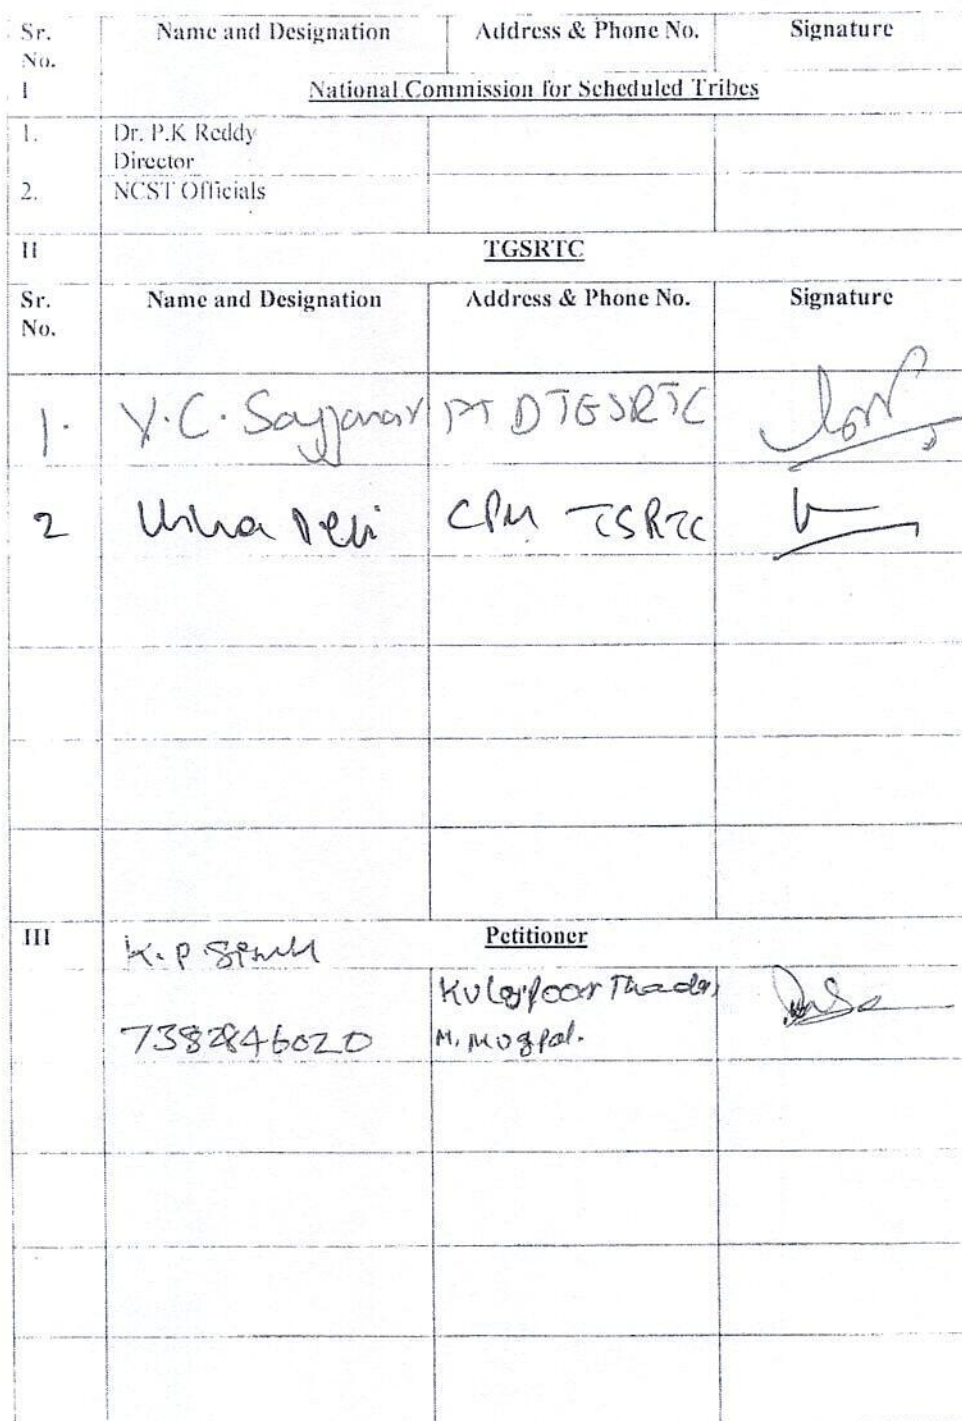 Sr. Name and Designation Address & Phone No. Signature
No.
I National Commission for Scheduled Tribes
1. Dr. P.K Reddy
Director
2. NCST Officials
II TGSRTC
Sr. Name and Designation Address & Phone No. Signature
No.
1. V.C. Sajjanar DTGSRTC
2 Usha Devi CPM TSRTC
III K.P Singh Petitioner
7382846020 M. Mogpal.